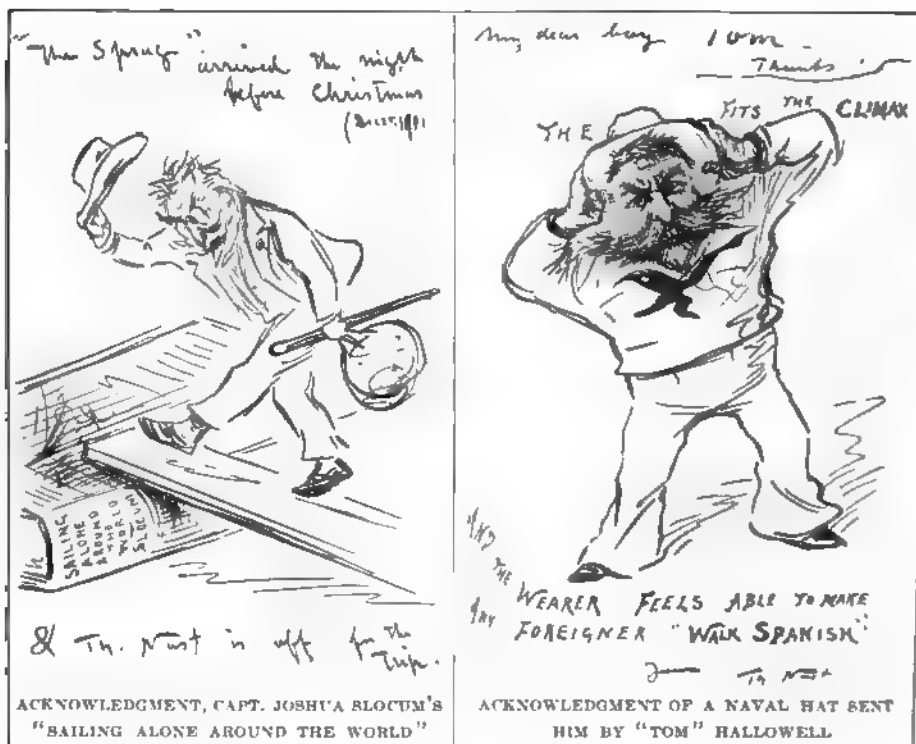 "The Spray" arrived the night
before Christmas
& Th. Nast is off for the
Trip.
SAILING
ALONE
AROUND
THE
WORLD
SLOCUM
ACKNOWLEDGMENT, CAPT. JOSHUA SLOCUM'S
"SAILING ALONE AROUND THE WORLD"
My dear boy Tom
Thanks
THE FITS THE CLIMAX
AND
THE
WEARER FEELS ABLE TO MAKE
ANY FOREIGNER "WALK SPANISH"
Th Nast
ACKNOWLEDGMENT OF A NAVAL HAT SENT
HIM BY "TOM" HALLOWELL